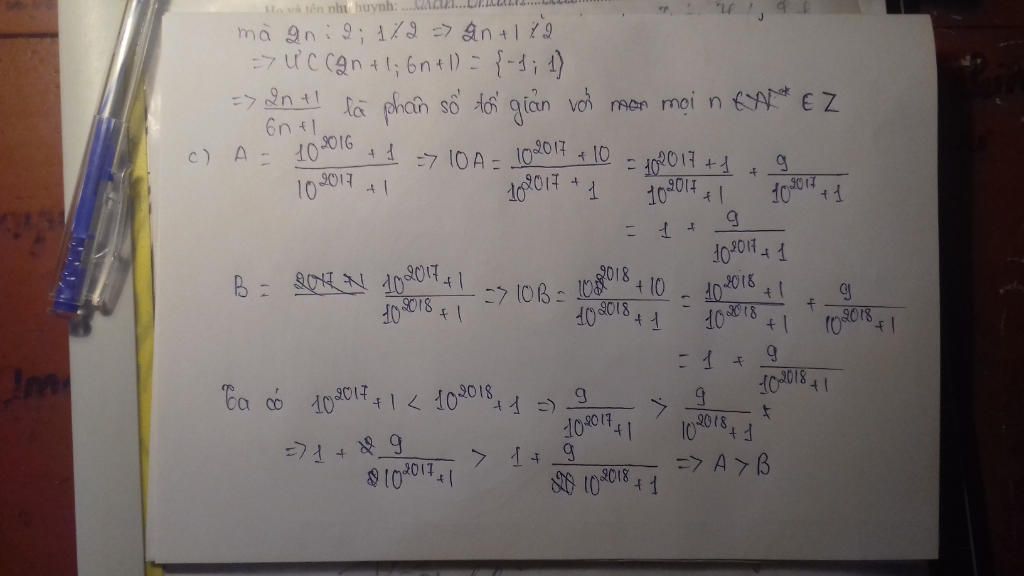 Họ và tên phụ huynh:
mà 2n ⋮ 2; 1 ⋮̸ 2 => 2n+1 ⋮̸ 2
=> ƯC(2n+1; 6n+1) = {-1; 1}
=> (2n+1)/(6n+1) là phân số tối giản với mọi n ∈ Z
c) A = (10^2016 + 1)/(10^2017 + 1) => 10A = (10^2017 + 10)/(10^2017 + 1) = (10^2017 + 1)/(10^2017 + 1) + 9/(10^2017 + 1)
= 1 + 9/(10^2017 + 1)
B = (10^2017 + 1)/(10^2018 + 1) => 10B = (10^2018 + 10)/(10^2018 + 1) = (10^2018 + 1)/(10^2018 + 1) + 9/(10^2018 + 1)
= 1 + 9/(10^2018 + 1)
Ta có 10^2017 + 1 < 10^2018 + 1 => 9/(10^2017 + 1) > 9/(10^2018 + 1)
=> 1 + 9/(10^2017 + 1) > 1 + 9/(10^2018 + 1) => A > B